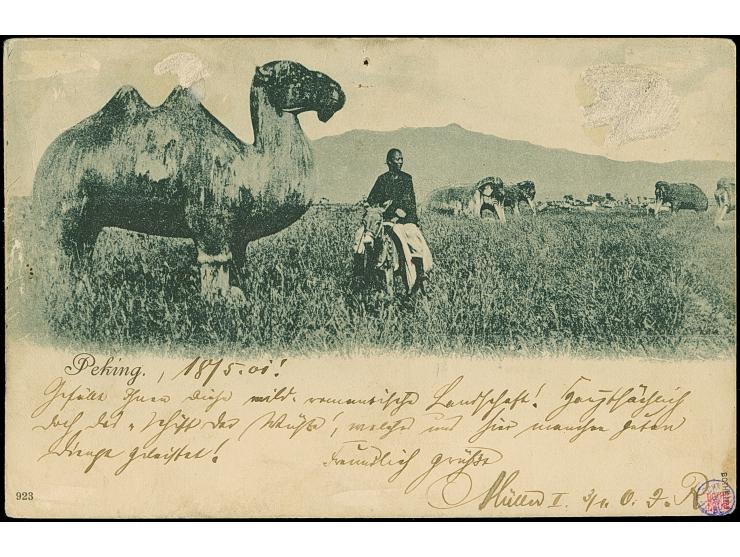 Peking., 18/5.01!
Gefällt Ihnen diese wild-romantische Landschaft! Hauptsächlich
doch das "Schiff der Wüste", welches uns hier manchen guten
Dienst geleistet!
Freundlich grüßt
Müller II. 3/1. O. J. R.
923